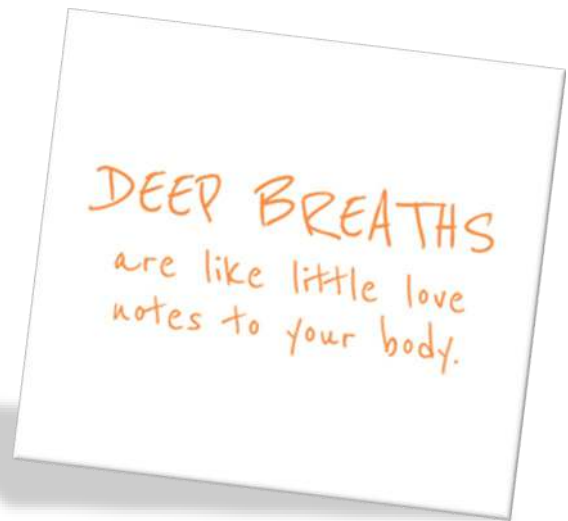 DEEP BREATHS
are like little love
notes to your body.